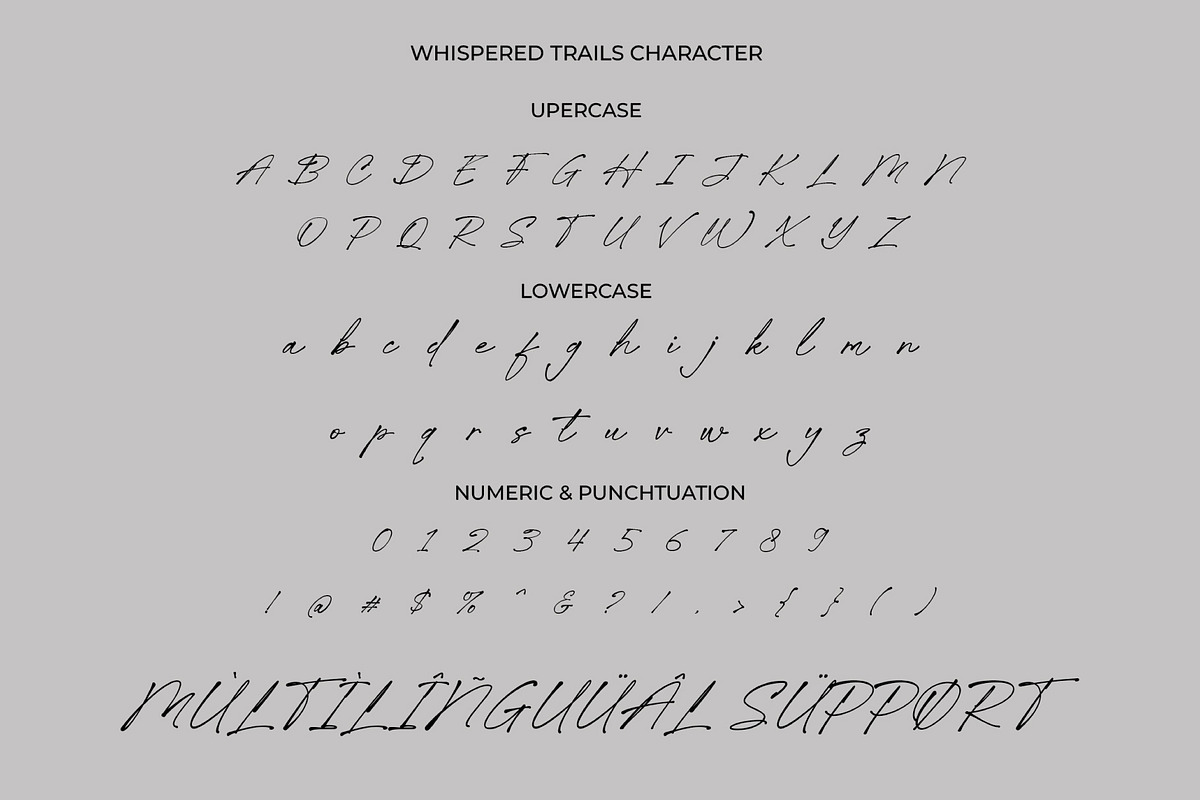 WHISPERED TRAILS CHARACTER
UPERCASE
A B C D E F G H I J K L M N
O P Q R S T U V W X Y Z
LOWERCASE
a b c d e f g h i j k l m n
o p q r s t u v w x y z
NUMERIC & PUNCHTUATION
0 1 2 3 4 5 6 7 8 9
! @ # $ % ^ & ? / . > { } ( )
MÙLTÌLÎÑGUÜÂL SÜPPØRT